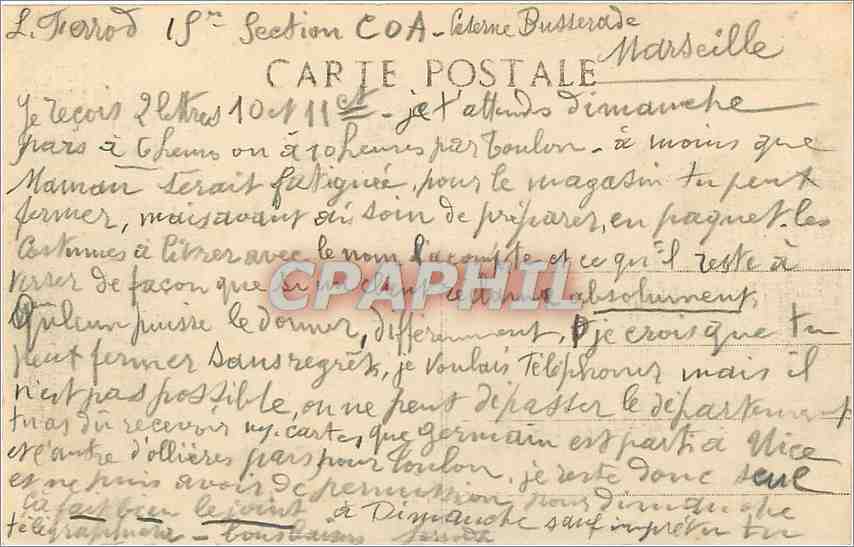 L. Ferrod 15me Section COA - Caserne Busserade
Marseille
CARTE POSTALE
Je reçois 2 lettres 10 et 11 ct - je t'attends dimanche
pars à 6 heures ou à 10 heures par Toulon - à moins que
Maman serait fatiguée, pour le magasin tu peux
fermer, mais avant ais soin de préparer, en paquet les
costumes à livrer avec le nom l'acompte et ce qu'il reste à
verser de façon que si un client réclame absolument
Quelcun puisse le donner, différemment, je crois que tu
peut fermer sans regrêt, je voulais Téléphoner mais il
n'est pas possible, on ne peut dépasser le département
tu as dû recevoir my. cartes que germain est parti à Nice
et l'autre d'ollières pars pour Toulon. je reste donc seul
et ne puis avoir de permission pour dimanche
ça fait bien le joint à Dimanche sauf imprévu tu
télégraphiera - bons baisers
CPAPHIL